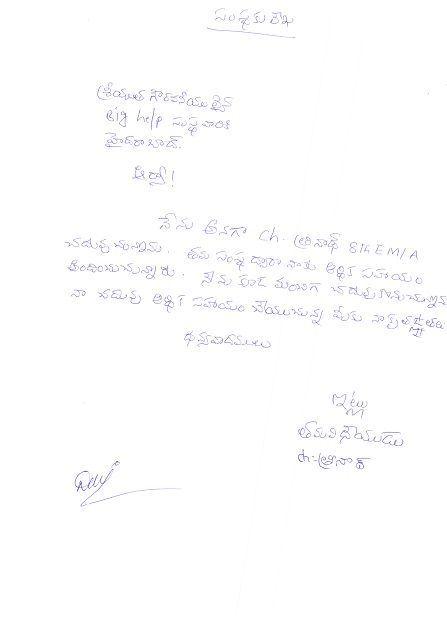 సంస్థకు లేఖ
శ్రీయుత గౌరవనీయులైన
Big help సంస్థ వారికి
హైదరాబాద్.
ఆర్యా!
నేను అనగా ch. శ్రీనాథ్ 8th EM/A
చదువుచున్నాను. తమ సంస్థ ద్వారా నాకు ఆర్థిక సహాయం
అందించుచున్నారు. నేను కూడ మంచిగ చదువుకొనుచున్నాను.
నా చదువు ఆర్థిక సహాయం చేయుచున్న మీకు నా కృతజ్ఞతలు
ధన్యవాదములు
ఇట్లు
తమ విధేయుడు
ch. శ్రీనాథ్